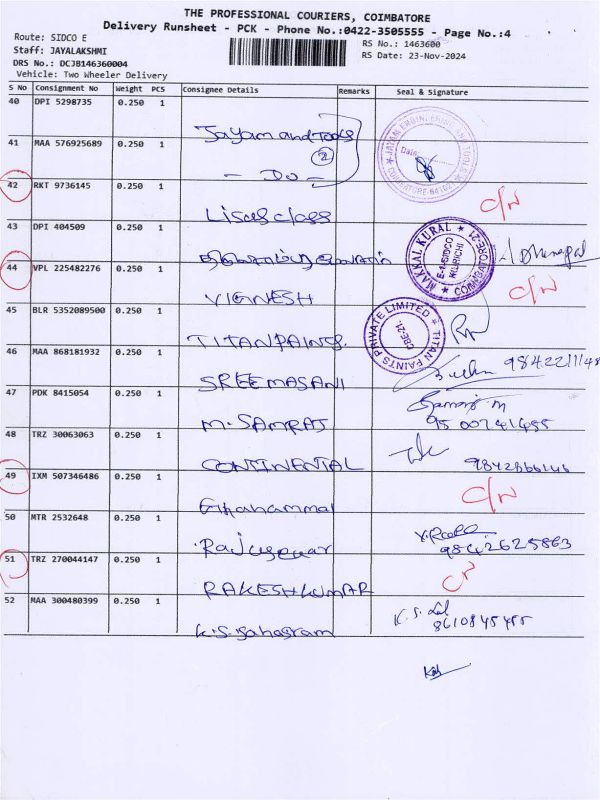 THE PROFESSIONAL COURIERS, COIMBATORE
Delivery Runsheet - PCK - Phone No.:0422-3505555 - Page No.:4
Route: SIDCO E
RS No.: 1463600
Staff: JAYALAKSHMI
RS Date: 23-Nov-2024
DRS No.: DCJB146360004
Vehicle: Two Wheeler Delivery
S No Consignment No Weight PCS Consignee Details Remarks Seal & Signature
40 DPI 5298735 0.250 1
Jayam and Tools
41 MAA 576925689 0.250 1
2
- Do -
42 RKT 9736145 0.250 1 C/N
Lisas class
43 DPI 404509 0.250 1
MAKKAL KURAL
E-1-SIDCO
KURICHI
COIMBATORE-21
44 VPL 225482276 0.250 1 C/N
VIGNESH
45 BLR 5352089500 0.250 1
TITAN PAINTS.
TITAN PAINTS PRIVATE LIMITED
CBE-21.
46 MAA 868181932 0.250 1
SREEMASANI
47 PDK 8415054 0.250 1
M. SAMRAJ
48 TRZ 30063063 0.250 1
CONTINENTAL
49 IXM 507346486 0.250 1 C/N
50 MTR 2532648 0.250 1
9842625863
51 TRZ 270044147 0.250 1
RAKESH KUMAR
52 MAA 300480399 0.250 1
K.S. Sahasram